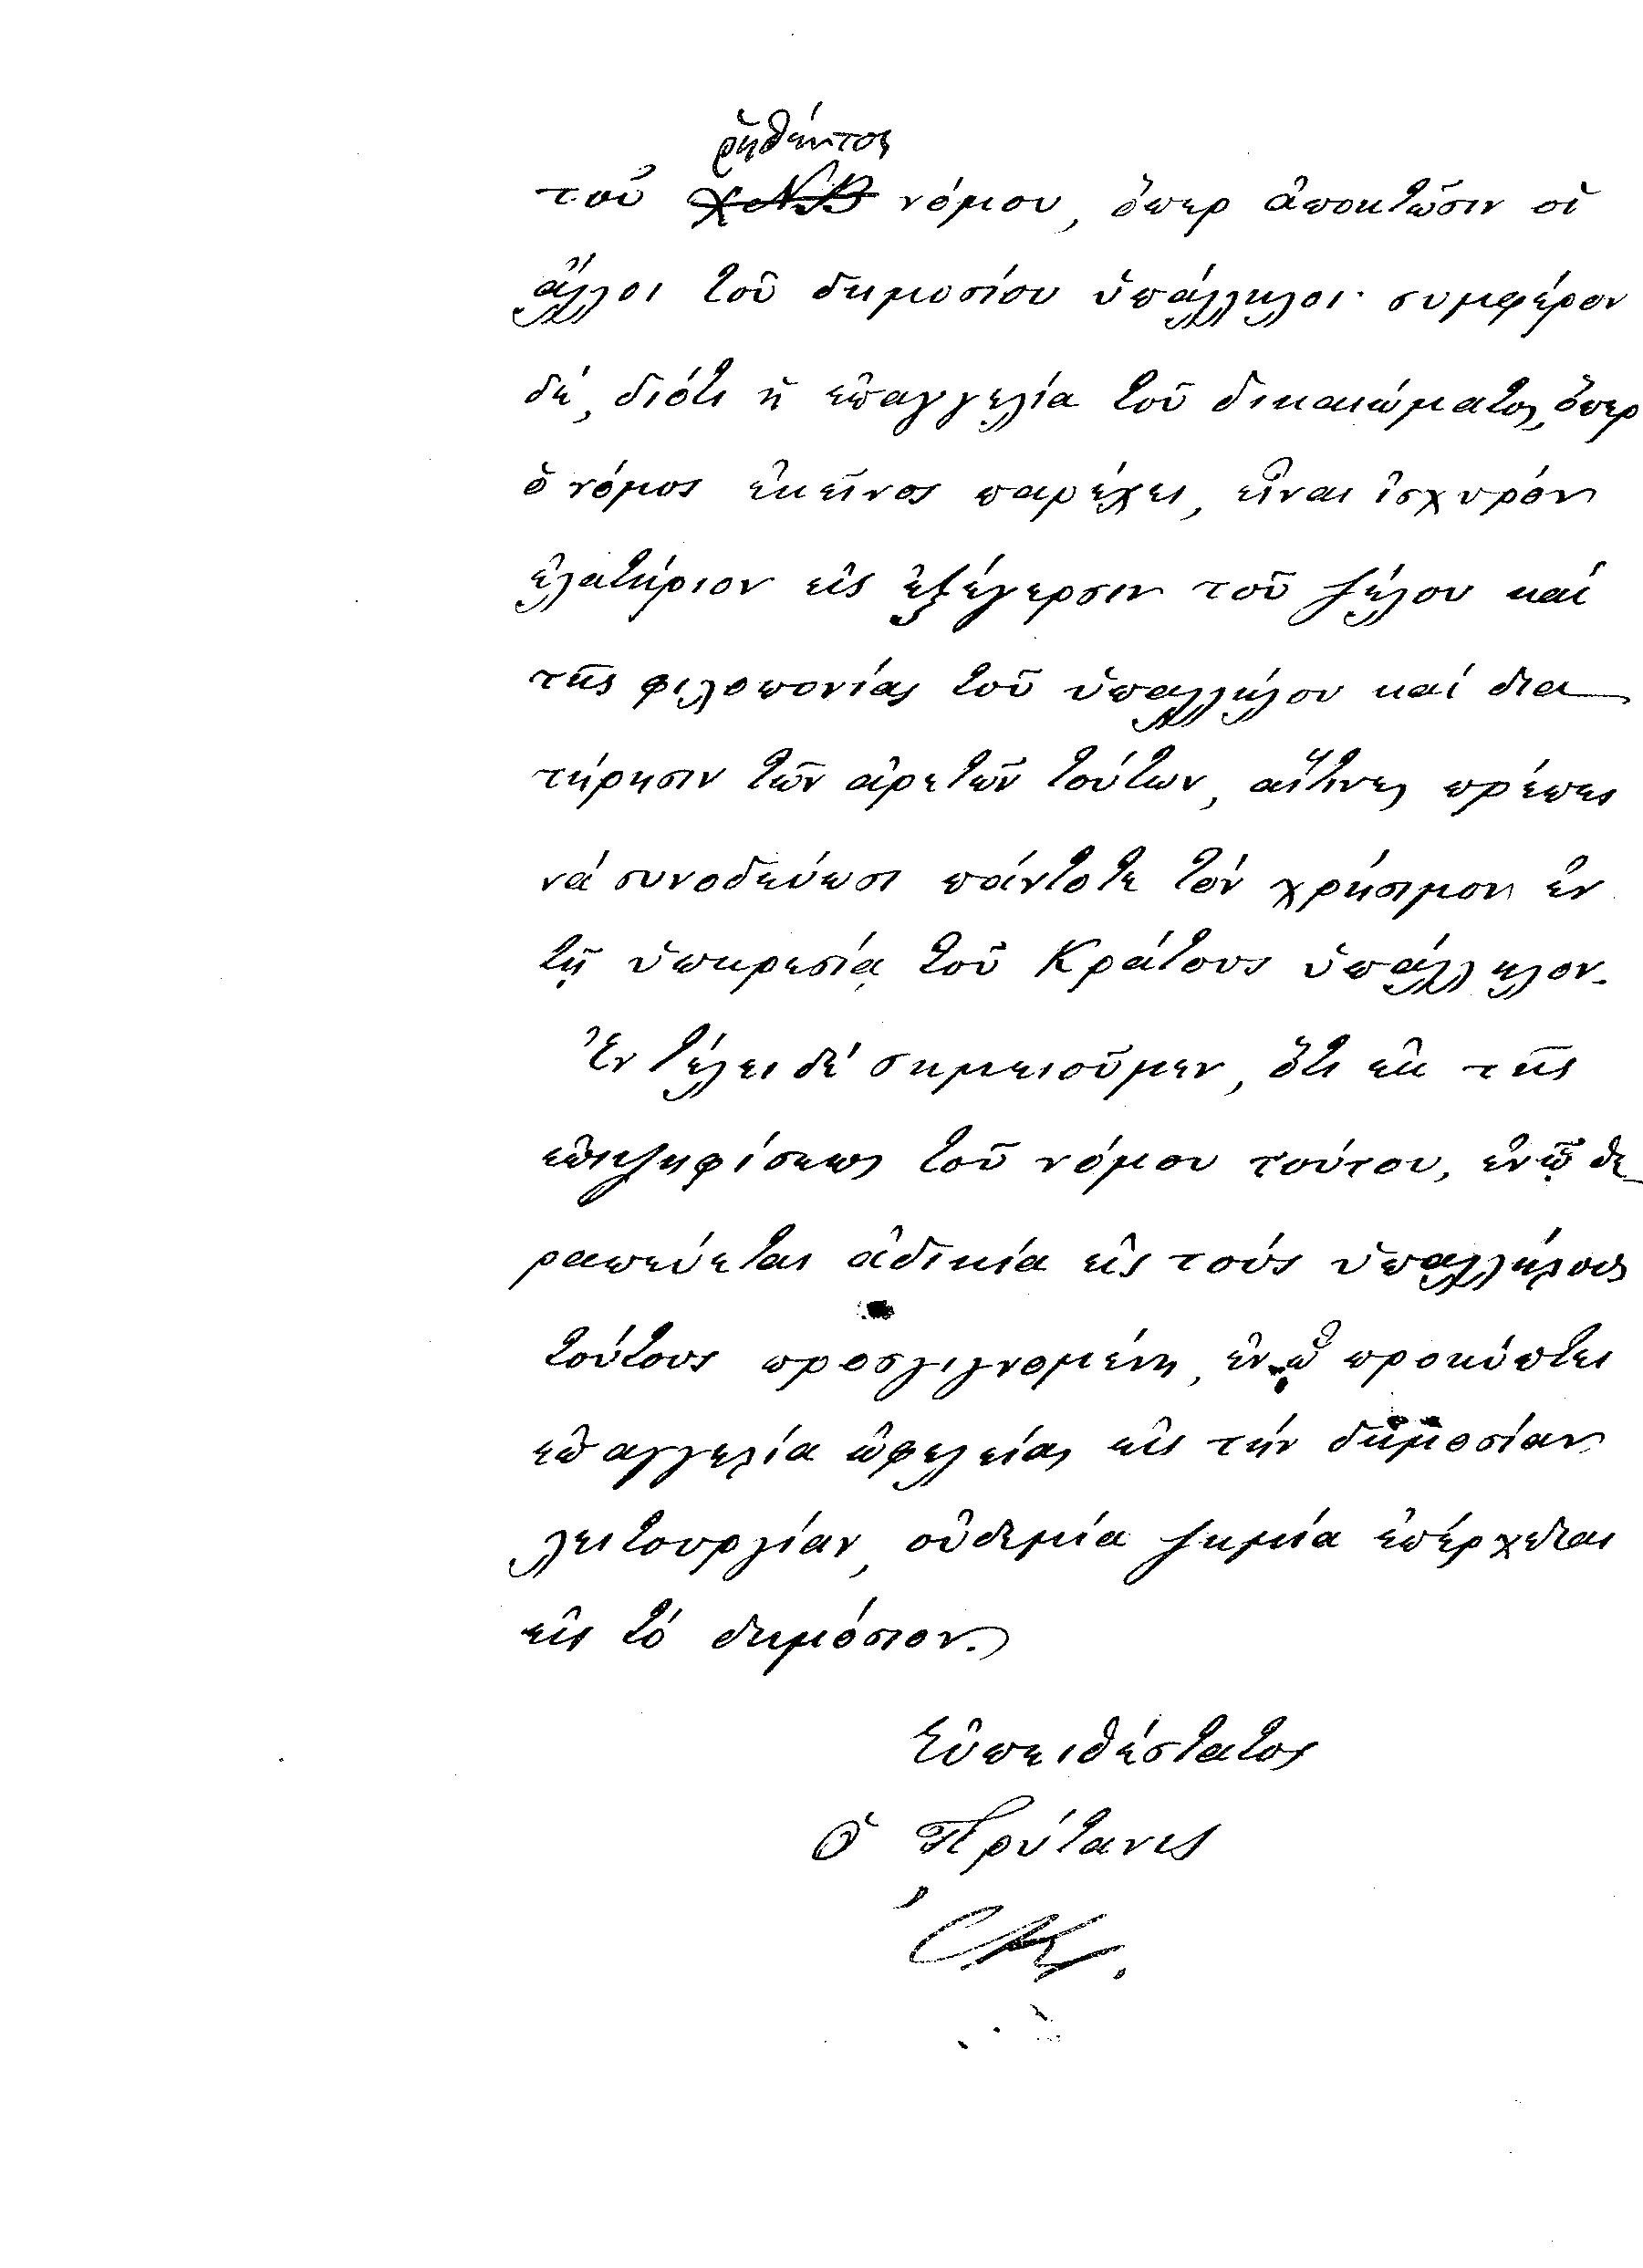 ῥηθέντος
τοῦ ΧΝΒ νόμου, ὅπερ ἀποκτῶσιν οἱ
ἄλλοι τοῦ δημοσίου ὑπάλληλοι· συμφέρον
δέ, διότι ἡ ἐπαγγελία τοῦ δικαιώματος, ὅπερ
ὁ νόμος ἐκεῖνος παρέχει, εἶναι ἰσχυρόν
ἐλατήριον εἰς ἐξέγερσιν τοῦ ζήλου καί
τῆς φιλοπονίας τοῦ ὑπαλλήλου καί δια
τήρησιν τῶν ἀρετῶν τούτων, αἵτινες πρέπει
νά συνοδεύωσι πάντοτε τόν χρήσιμον ἐν
τῇ ὑπηρεσίᾳ τοῦ Κράτους ὑπάλληλον.
Ἐν τέλει δέ σημειοῦμεν, ὅτι ἐκ τῆς
ἐπιψηφίσεως τοῦ νόμου τούτου, ἐν ᾧ θε
ραπεύεται ἀδικία εἰς τούς ὑπαλλήλους
τούτους προσγιγνομένη, ἐν ᾧ προκύπτει
ἐπαγγελία ὠφελείας εἰς τήν δημοσίαν
λειτουργίαν, οὐδεμία ζημία ἐπέρχεται
εἰς τό δημόσιον.
Εὐπειθέστατος
Ὁ Πρύτανις